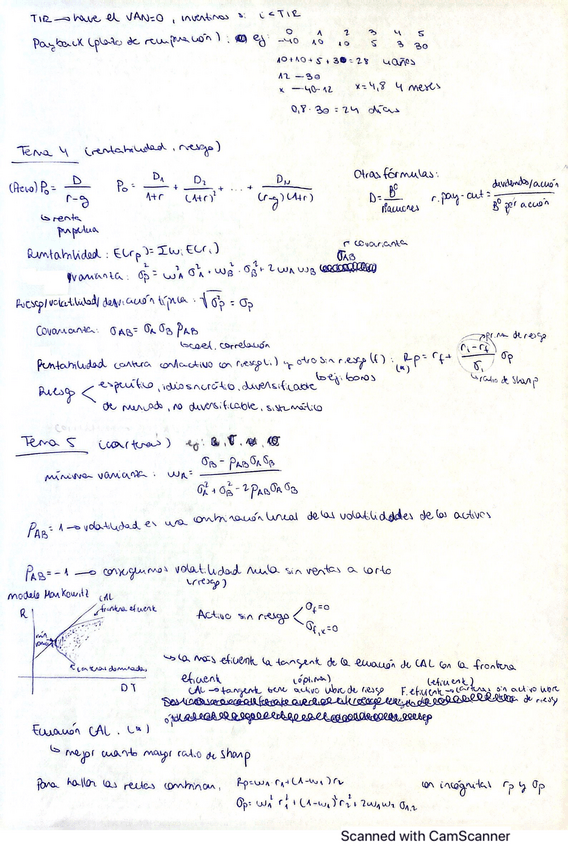 TIR → hace el VAN=0, invertimos si i < TIR
Payback (plazo de recuperación): ej:
0 1 2 3 4 5
-40 10 10 5 3 30
10+10+5+3=28 4 años
12 — 30
x — 40-12 x=4,8 4 meses
0,8·30=24 días
Tema 4 (rentabilidad, riesgo)
(Activo) P₀ = D / (r-g) P₀ = D₁/(1+r) + D₂/(1+r)² + ... + D_N/((r-g)(1+r))
↳ renta perpetua
Otras fórmulas:
D = Bº / nº acciones r. pay-out = dividendo/acción / Bº por acción
Rentabilidad: E(r_p) = Σw_i E(r_i)
r covarianza
Varianza: σ_p² = w_A² σ_A² + w_B² · σ_B² + 2 w_A w_B σ_AB
Riesgo/volatilidad/desviación típica: √σ_p² = σ_p
Covarianza: σ_AB = σ_A σ_B ρ_AB
↳ coef. correlación
prima de riesgo
Rentabilidad cartera con activo con riesgo(i) y otro sin riesgo (f): R_p = r_f + (r_i - r_f)/σ_i σ_p
↳ ej: bonos (*) ↳ ratio de sharp
Riesgo < específico, idiosincrático, diversificable
de mercado, no diversificable, sistemático
Tema 5 (carteras) ej:
mínima varianza: w_A = (σ_B - ρ_AB σ_A σ_B) / (σ_A² + σ_B² - 2ρ_AB σ_A σ_B)
ρ_AB = 1 → volatilidad es una combinación lineal de las volatilidades de los activos
ρ_AB = -1 → conseguimos volatilidad nula sin ventas a corto
(riesgo)
modelo Markowitz
R CAL
frontera eficiente
carteras dominadas
DT
Activo sin riesgo < σ_f = 0
σ_f,x = 0
↳ la más eficiente la tangent de la ecuación de CAL con la frontera eficient
(óptima) (eficient)
CAL → tangente tiene activo libre de riesgo F. eficient → carteras sin activo libre de riesgo
Ecuación CAL. (*)
↳ mejor cuanto mayor ratio de sharp
Para hallar las rectas combinan, R_p = w₁ r₁ + (1-w₁) r₂ con incógnitas r_p y σ_p
σ_p = w₁² r₁² + (1-w₁)² r₂² + 2w₁w₂ σ₁,₂
Scanned with CamScanner